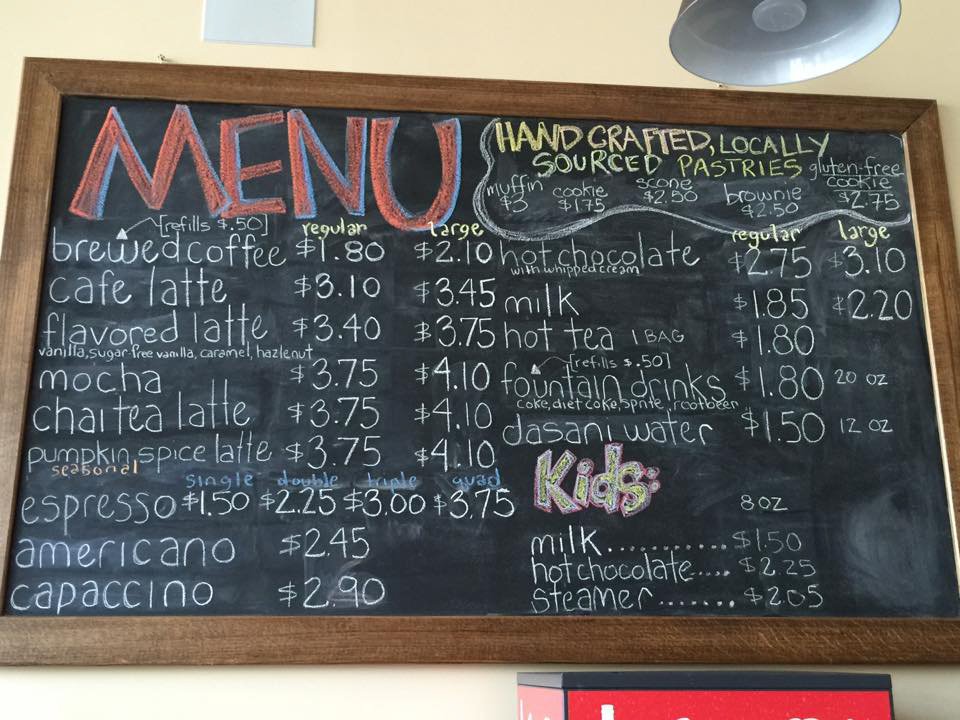 MENU
[refills $.50] regular large
brewed coffee $1.80 $2.10
cafe latte $3.10 $3.45
flavored latte $3.40 $3.75
vanilla, sugar-free vanilla, caramel, hazlenut
mocha $3.75 $4.10
chai tea latte $3.75 $4.10
pumpkin spice latte $3.75 $4.10
seasonal
single double triple quad
espresso $1.50 $2.25 $3.00 $3.75
americano $2.45
capaccino $2.90
HAND CRAFTED, LOCALLY
SOURCED PASTRIES
muffin $3
cookie $1.75
scone $2.50
brownie $2.50
gluten-free cookie $2.75
regular large
hot chocolate $2.75 $3.10
with whipped cream
milk $1.85 $2.20
hot tea 1 BAG $1.80
[refills $.50]
fountain drinks $1.80 20 oz
coke, diet coke, sprite, rootbeer
dasani water $1.50 12 oz
Kids:
8 oz
milk........... $1.50
hot chocolate..... $2.25
steamer....... $2.05